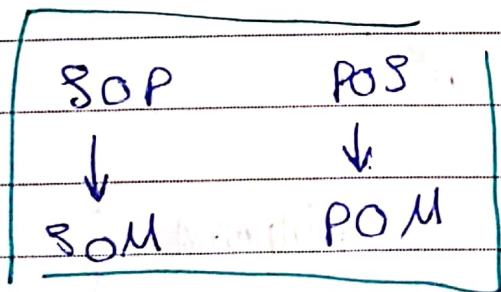 SOP POS
↓ ↓
SOM POM